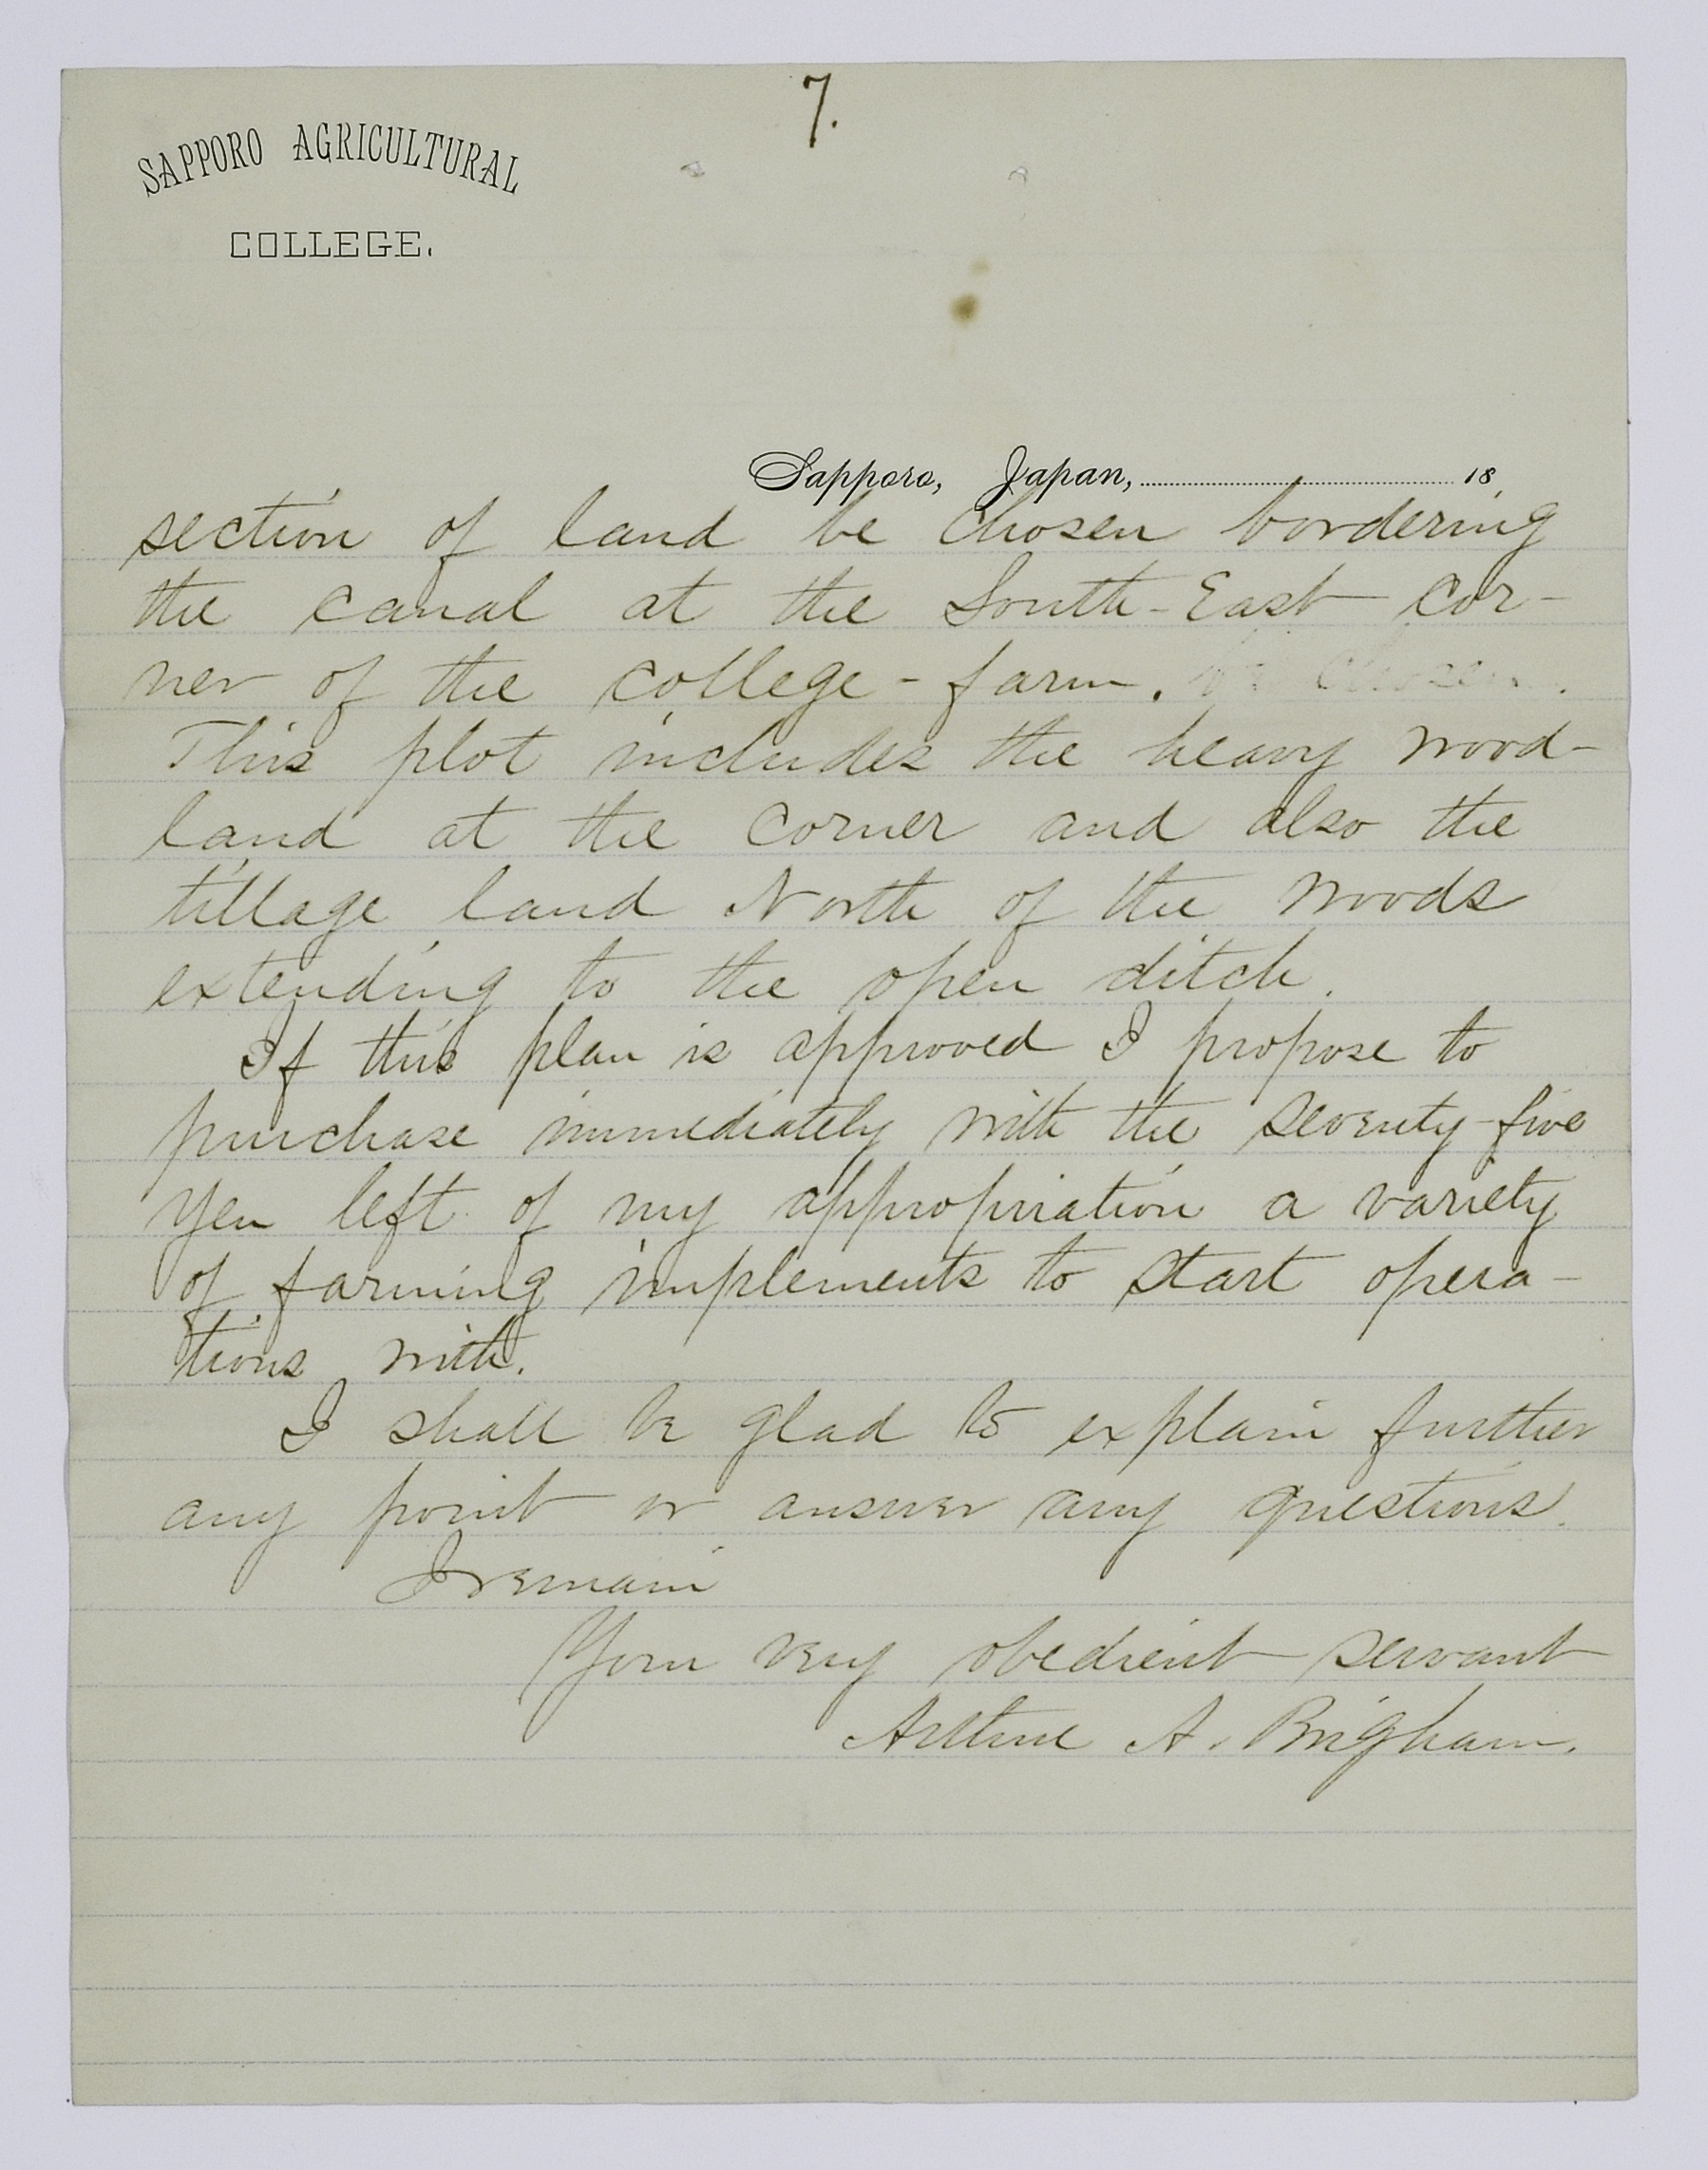 7.
SAPPORO AGRICULTURAL
COLLEGE.
Sapporo, Japan, 18
section of land be chosen bordering
the canal at the South-East cor-
ner of the college-farm. be chosen.
This plot includes the heavy wood-
land at the corner and also the
tillage land North of the woods
extending to the open ditch.
If this plan is approved I propose to
purchase immediately with the seventy-five
yen left of my appropriation a variety
of farming implements to start opera-
tions with.
I shall be glad to explain further
any point or answer any questions.
I remain
Your very obedient servant
Arthur A. Brigham.